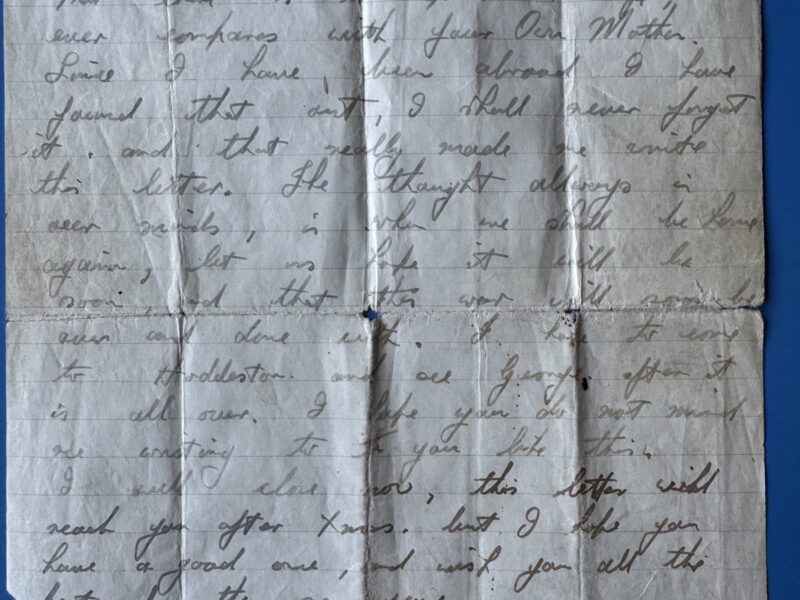 ever compares with your Own Mother.
Since I have been abroad I have
found that out, I shall never forget
it. and that really made me write
this letter. The thought allways in
our minds, is when we shall be home
again, let us hope it will be
soon, and that this war will soon be
over and done with. I hope to come
to Hoddeston. and see George after it
is all over. I hope you do not mind
me writing to you like this.
I will close now, this letter will
reach you after Xmas. but I hope you
have a good one, and wish you all the